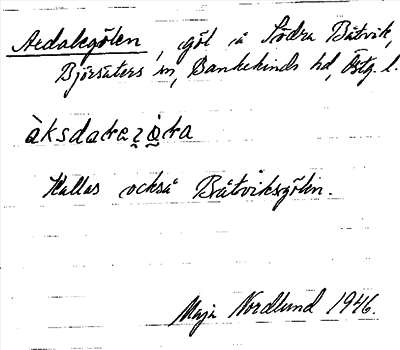 Axdalsgölen, göl å Södra Båtvik,
Björsäters sn, Bankekinds hd, Östg. l.
Kallas också Båtviksgölen.
Maja Nordlund 1946.